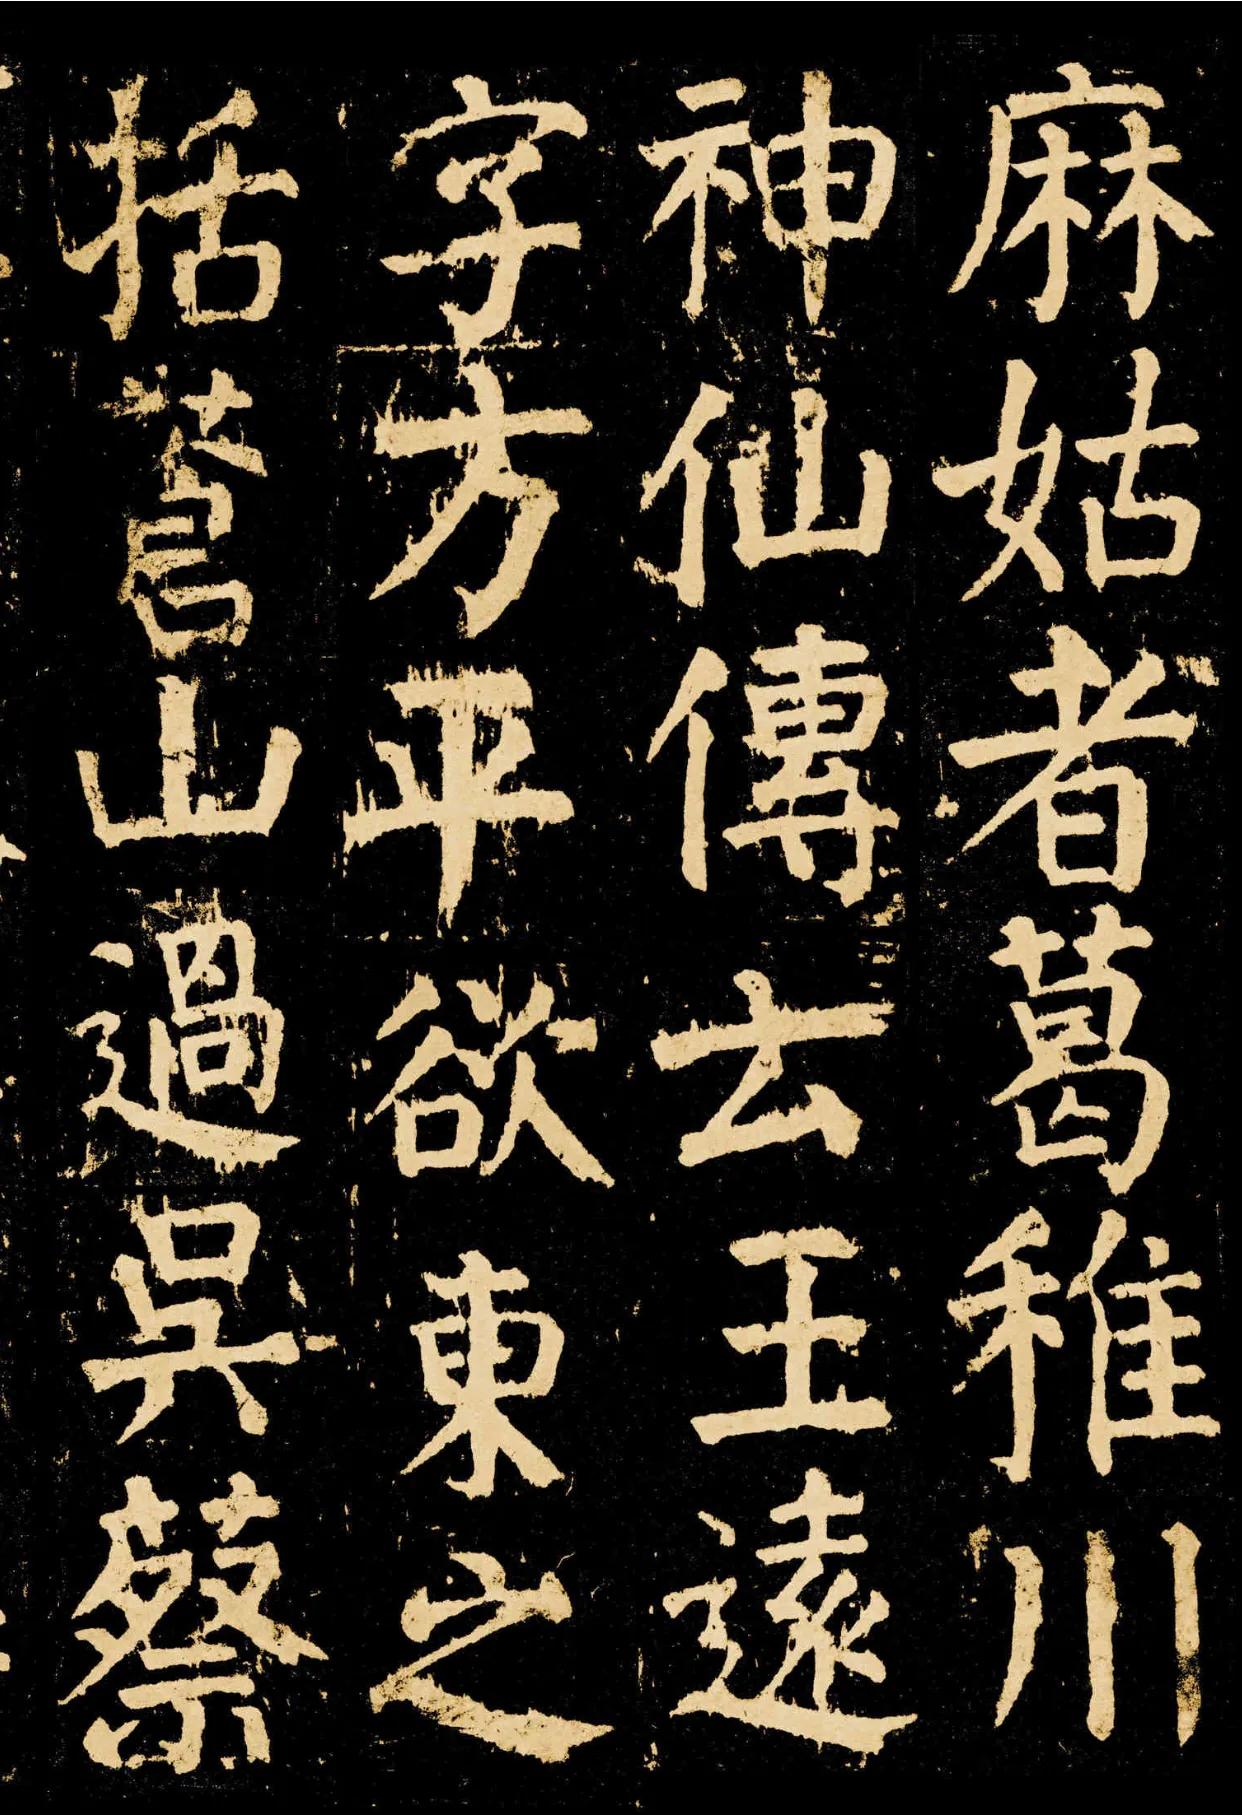 麻姑者葛稚川
神仙傳云王遠
字方平欲東之
括蒼山過吳蔡